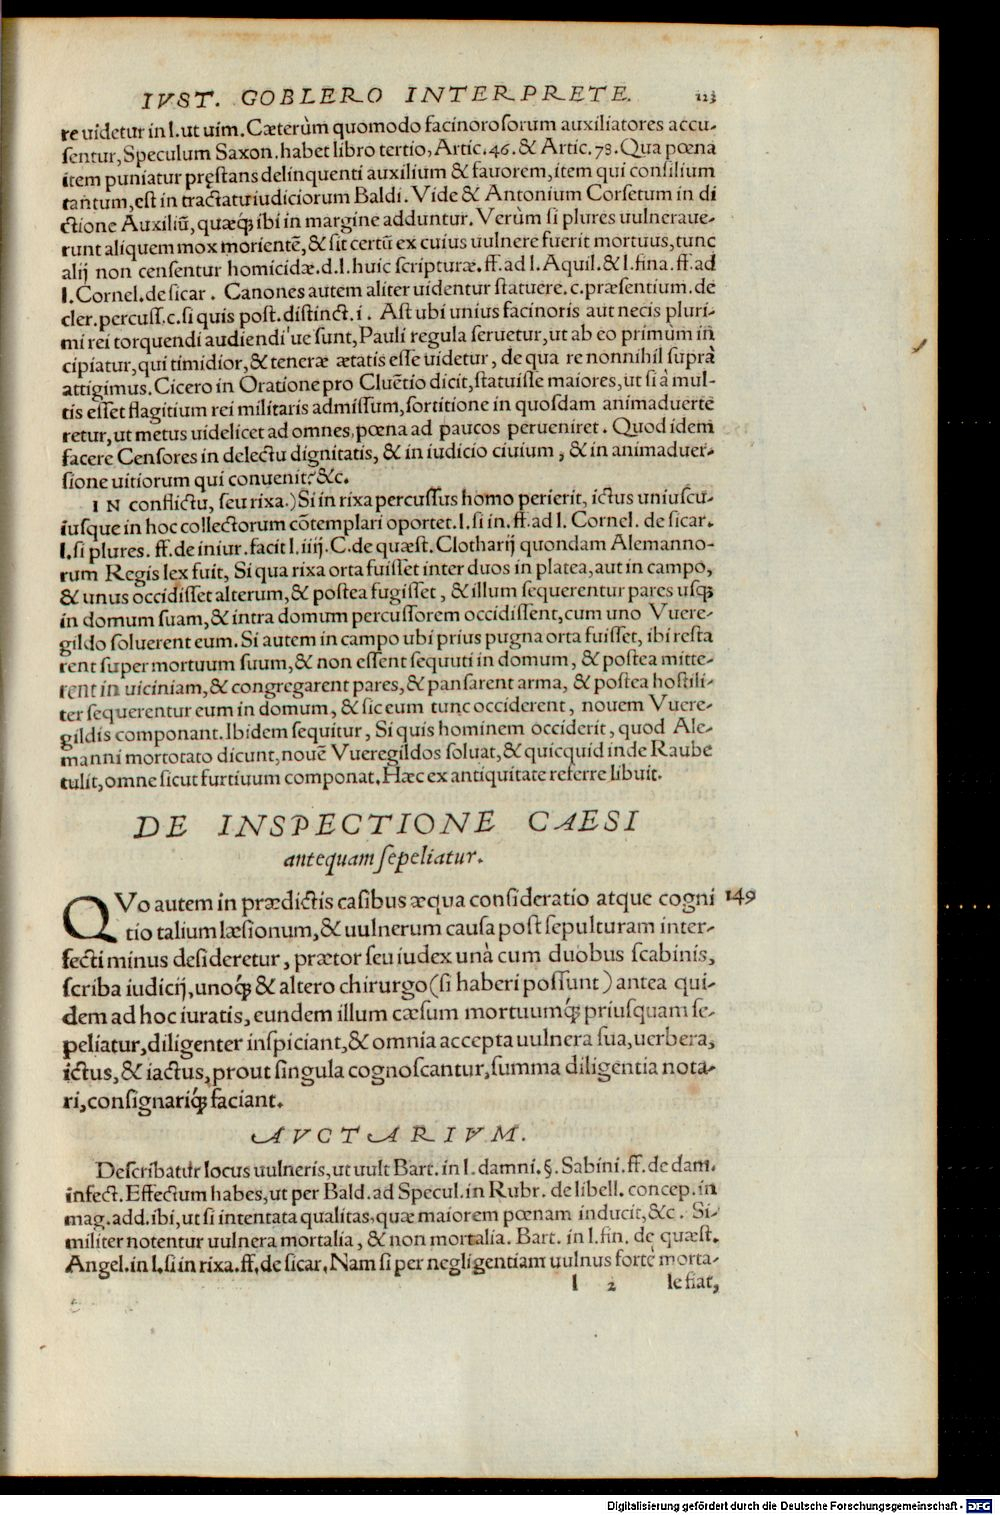 IVST. GOBLERO INTERPRETE. 113
re uidetur in l. ut uim. Cæterùm quomodo facinorosorum auxiliatores accu-
sentur, Speculum Saxon. habet libro tertio, Artic. 46. & Artic. 78. Qua pœna
item puniatur pręstans delinquenti auxilium & fauorem, item qui consilium
tantum, est in tractatu iudiciorum Baldi. Vide & Antonium Corsetum in di
ctione Auxiliū, quæq́; ibi in margine adduntur. Verùm si plures uulneraue-
runt aliquem mox morientē, & sit certū ex cuius uulnere fuerit mortuus, tunc
alij non censentur homicidæ. d. l. huic scripturæ. ff. ad l. Aquil. & l. fina. ff. ad
l. Cornel. de sicar. Canones autem aliter uidentur statuere. c. præsentium. de
cler. percuss. c. si quis post. distinct. i. Ast ubi unius facinoris aut necis pluri-
mi rei torquendi audiendi'ue sunt, Pauli regula seruetur, ut ab eo primùm in
cipiatur, qui timidior, & teneræ ætatis esse uidetur, de qua re nonnihil suprà
attigimus. Cicero in Oratione pro Cluētio dicit, statuisse maiores, ut si à mul-
tis esset flagitium rei militaris admissum, sortitione in quosdam animaduerte
retur, ut metus uidelicet ad omnes, pœna ad paucos perueniret. Quod idem
facere Censores in delectu dignitatis, & in iudicio ciuium, & in animaduer-
sione uitiorum qui conuenit? &c.
IN conflictu, seu rixa.) Si in rixa percussus homo perierit, ictus uniuscu-
iusque in hoc collectorum cōtemplari oportet. l. si in. ff. ad l. Cornel. de sicar.
l. si plures. ff. de iniur. facit l. iiij. C. de quæst. Clotharij quondam Alemanno-
rum Regis lex fuit, Si qua rixa orta fuisset inter duos in platea, aut in campo,
& unus occidisset alterum, & postea fugisset, & illum sequerentur pares usq;
in domum suam, & intra domum percussorem occidissent, cum uno Vuere-
gildo soluerent eum. Si autem in campo ubi prius pugna orta fuisset, ibi resta
rent super mortuum suum, & non essent sequuti in domum, & postea mitte-
rent in uiciniam, & congregarent pares, & pansarent arma, & postea hostili-
ter sequerentur eum in domum, & sic eum tunc occiderent, nouem Vuere-
gildis componant. Ibidem sequitur, Si quis hominem occiderit, quod Ale-
manni mortotato dicunt, nouē Vueregildos soluat, & quicquid inde Raube
tulit, omne sicut furtiuum componat. Hæc ex antiquitate referre libuit.
DE INSPECTIONE CAESI
antequam sepeliatur.
QVo autem in prædictis casibus æqua consideratio atque cogni 149
tio talium læsionum, & uulnerum causa post sepulturam inter-
fecti minus desideretur, prætor seu iudex unà cum duobus scabinis,
scriba iudicij, unoq́; & altero chirurgo (si haberi possunt) antea qui-
dem ad hoc iuratis, eundem illum cæsum mortuumq́; priusquam se-
peliatur, diligenter inspiciant, & omnia accepta uulnera sua, uerbera,
ictus, & iactus, prout singula cognoscantur, summa diligentia nota-
ri, consignariq́; faciant.
AVCTARIVM.
Describatur locus uulneris, ut uult Bart. in l. damni. §. Sabini. ff. de dam.
infect. Effectum habes, ut per Bald. ad Specul. in Rubr. de libell. concep. in
mag. add. ibi, ut si intentata qualitas, quæ maiorem pœnam inducit, &c. Si-
militer notentur uulnera mortalia, & non mortalia. Bart. in l. fin. de quæst.
Angel. in l. si in rixa. ff. de sicar. Nam si per negligentiam uulnus fortè morta-
l 2 le fiat,
Digitalisierung gefördert durch die Deutsche Forschungsgemeinschaft - DFG